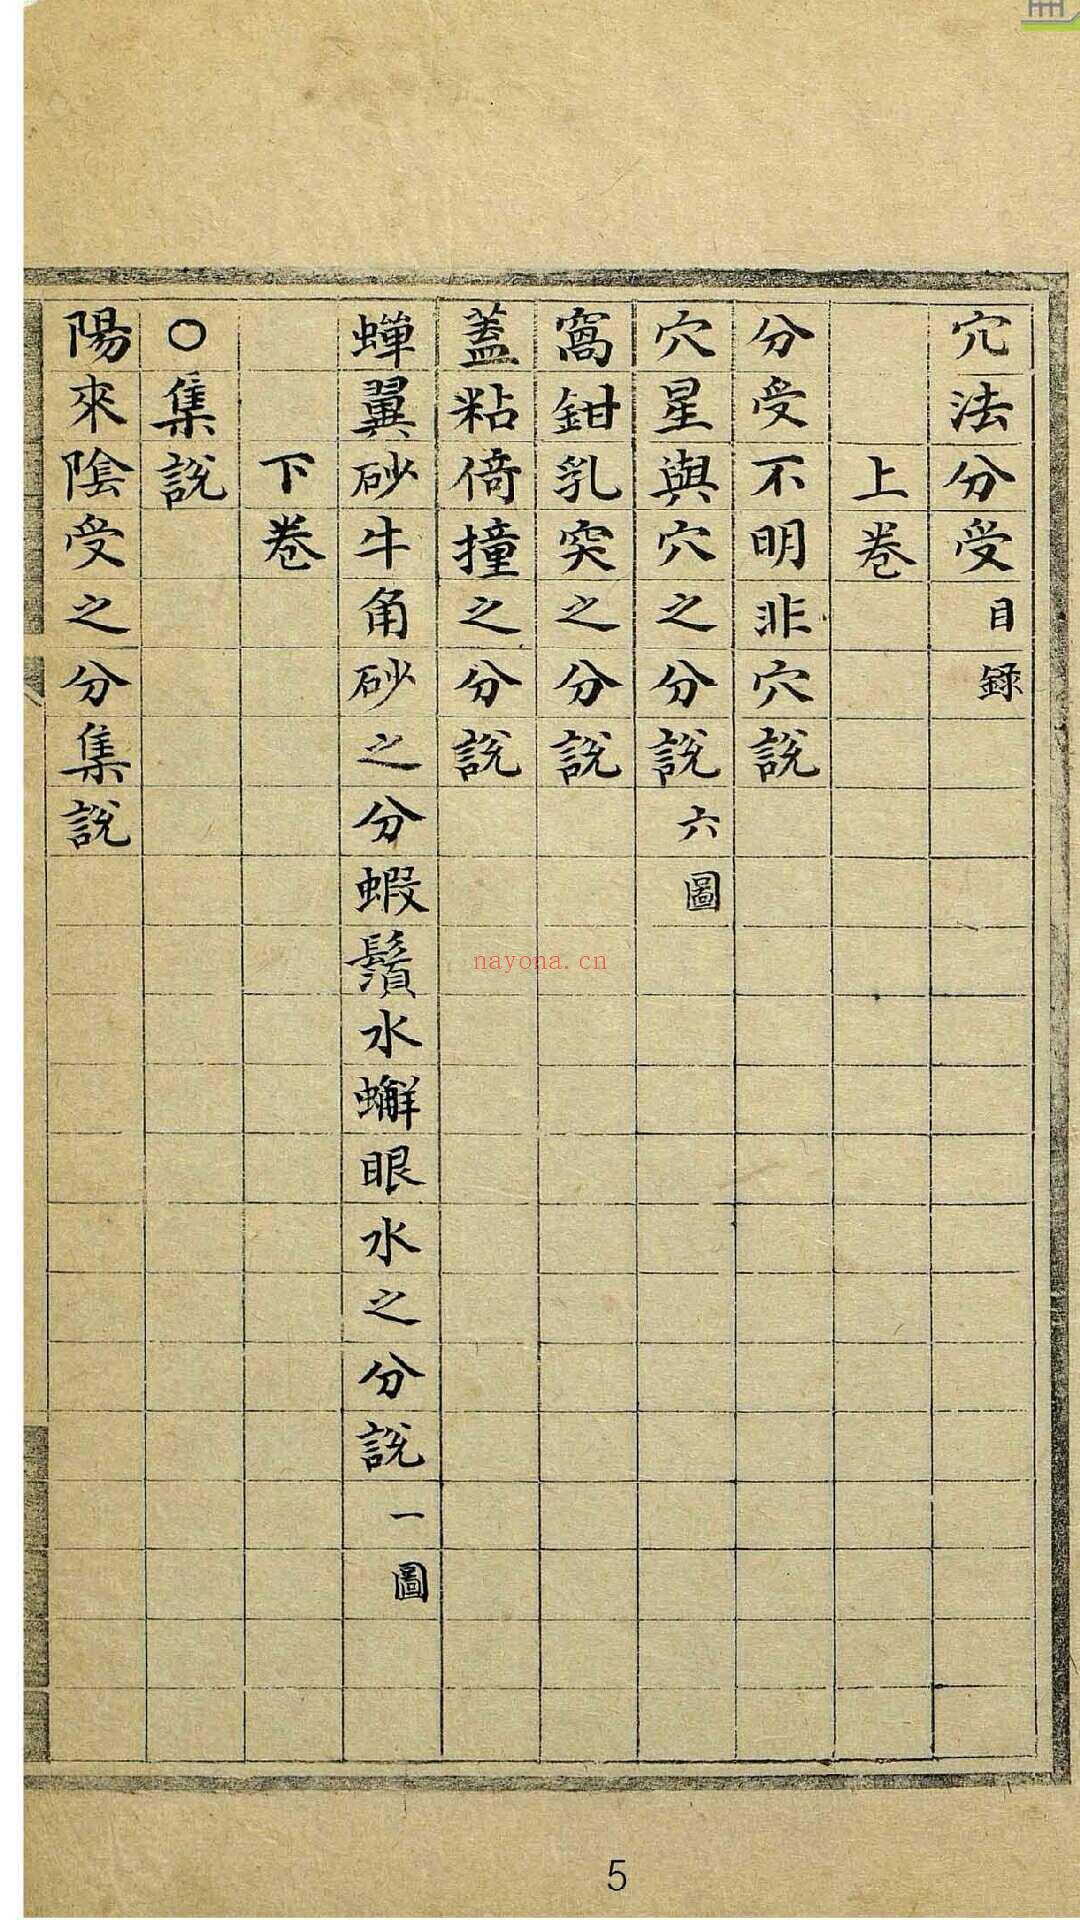 穴法分受目錄
上卷
分受不明非穴說
穴星與穴之分說六圖
窩鉗乳突之分說
蓋粘倚撞之分說
蟬翼砂牛角砂之分蝦鬚水蠏眼水之分說一圖
下卷
○集說
陽來陰受之分集說
nayona.cn
5